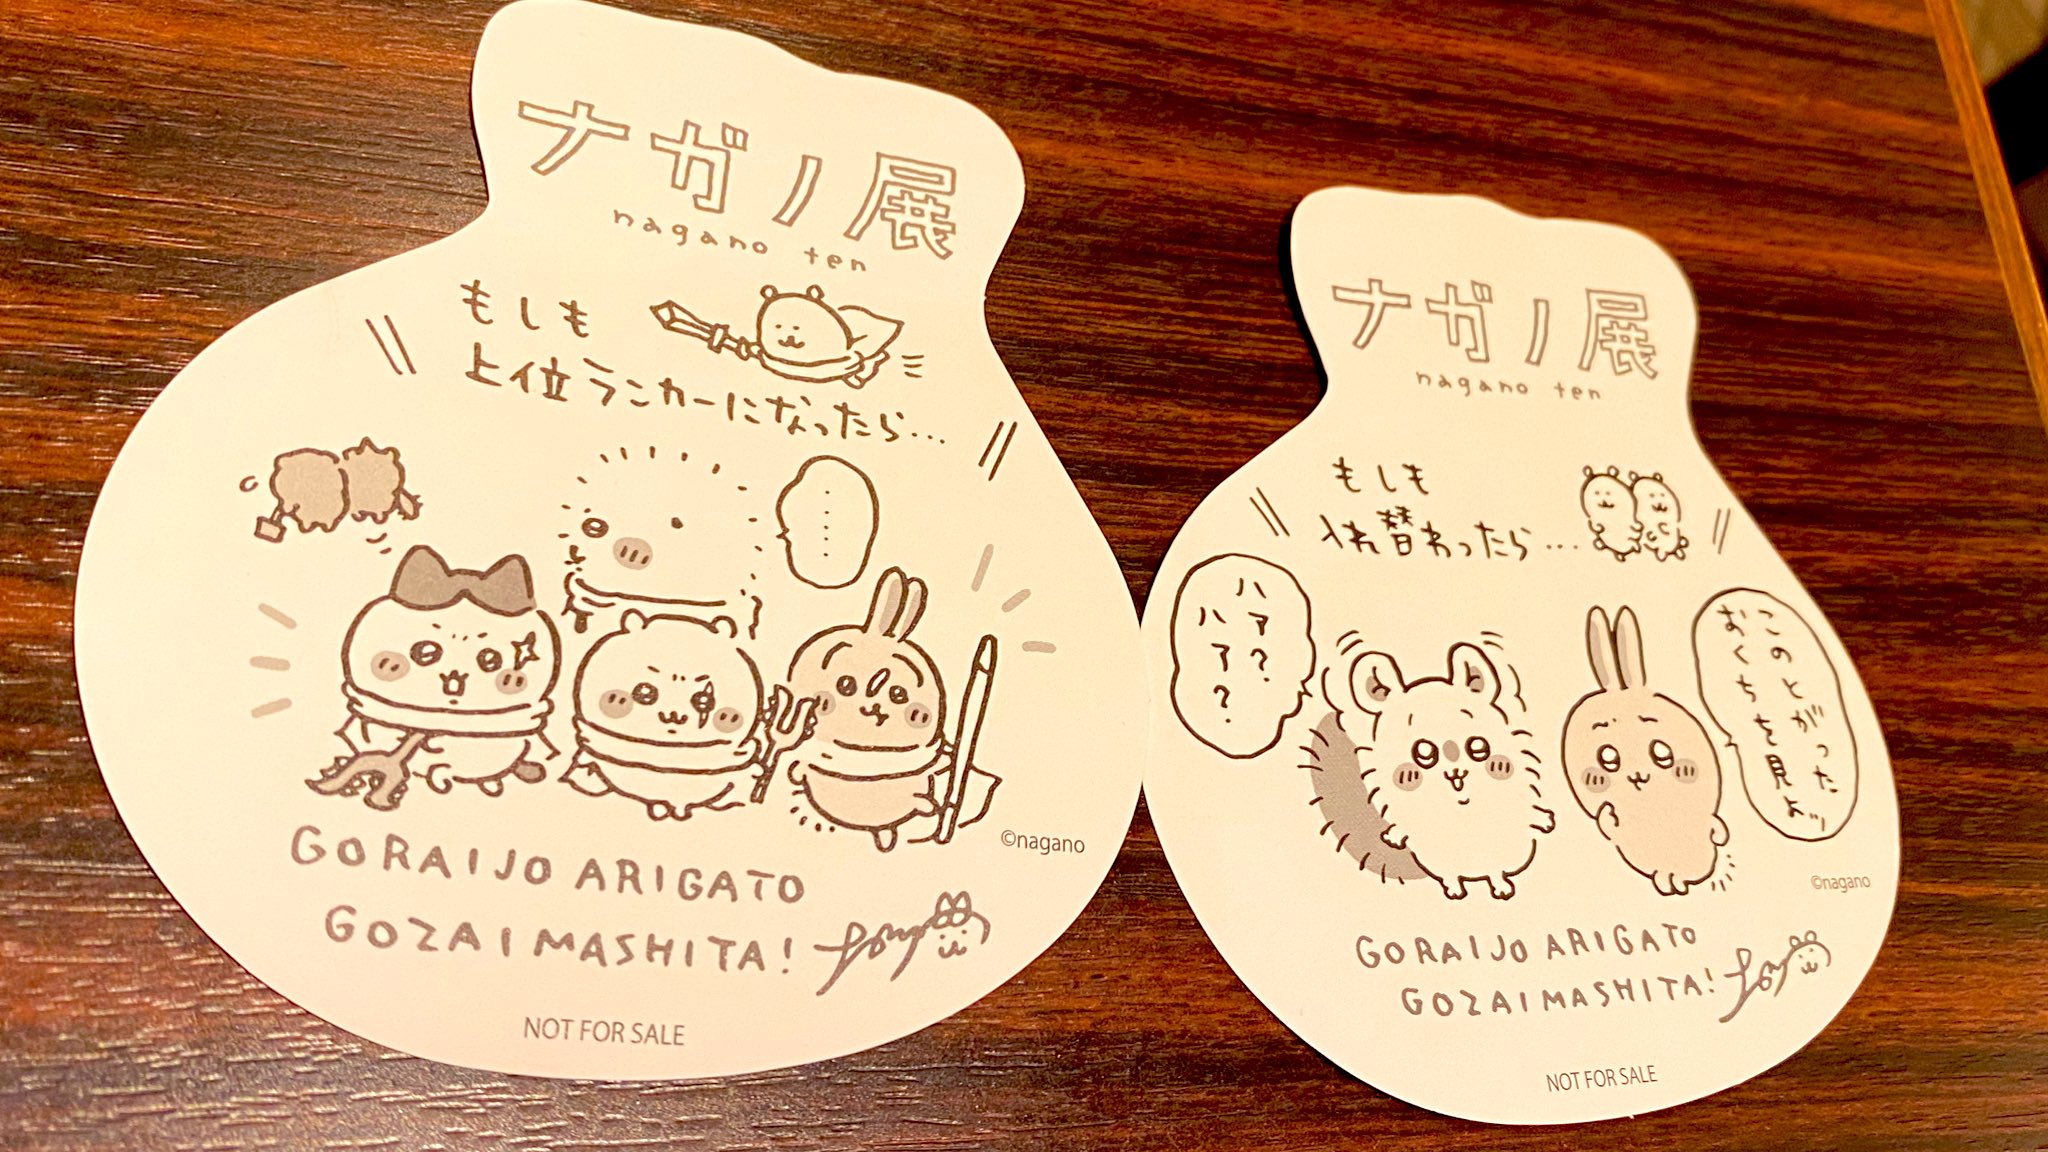 ナガノ展
nagano ten
もしも
上位ランカーになったら…
……
©nagano
GORAIJO ARIGATO
GOZAIMASHITA!
NOT FOR SALE
ナガノ展
nagano ten
もしも
入れ替わったら…
ハァ?
ハァ?
このとがった
おくちを見よ
©nagano
GORAIJO ARIGATO
GOZAIMASHITA!
NOT FOR SALE